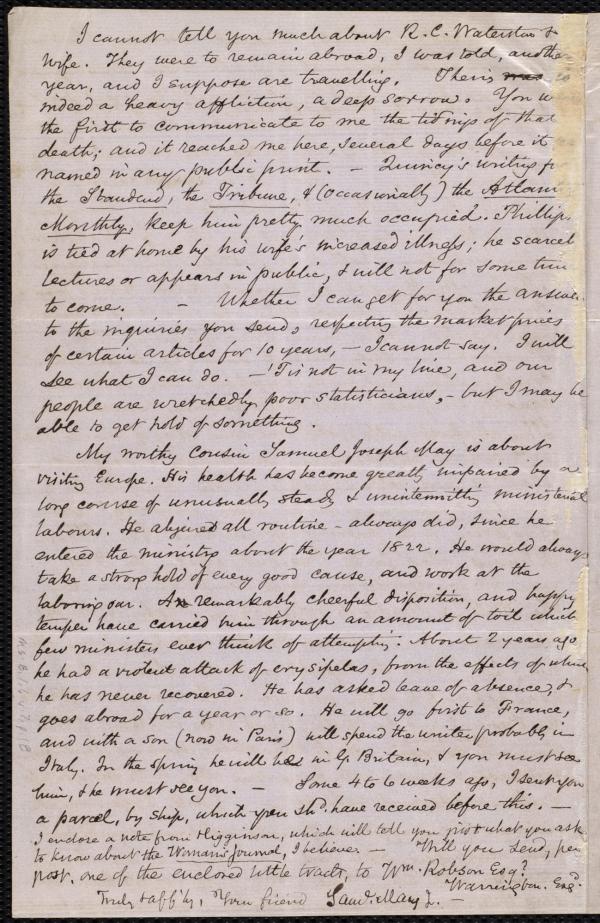 I cannot tell you much about R. C. Waterston &
wife. They were to remain abroad, I was told, another
year, and I suppose are travelling. Theirs was is
indeed a heavy affliction, a deep sorrow. You w
the first to communicate to me the tidings of that
death; and it reached me here, several days before it
named in any public print. — Quincy's writing f
the Standard, the Tribune, & (occasionally) the Atlan
Monthly, keep him pretty much occupied. Phillips
is tied at home by his wife's increased illness; he scarcel
lectures or appears in public, & will not for some tim
to come. — Whether I can get for you the answer
to the inquiries you send, respecting the market prices
of certain articles for 10 years, — I cannot say. I will
see what I can do. — 'Tis not in my line, and our
people are wretchedly poor statisticians, — but I may be
able to get hold of something.
My worthy cousin Samuel Joseph May is about
visiting Europe. His health has become greatly impaired by a
long course of unusually steady & unintermitting ministerial
labours. He abjured all routine – always did, since he
entered the ministry about the year 1822. He would always
take a strong hold of every good cause, and work at the
laboring oar. A remarkably cheerful disposition, and happy
temper have carried him through an amount of toil which
few ministers ever think of attempting. About 2 years ago
he had a violent attack of erysipelas, from the effects of which
he has never recovered. He has asked leave of absence, &
goes abroad for a year or so. He will go first to France,
and with a son (now in Paris) will spend the winter probably in
Italy. In the spring he will be in G. Britain, & you must see
him, & he must see you. — Some 4 to 6 weeks ago, I sent you
a parcel, by ship, which you shd. have received before this. —
I enclose a note from Higginson, which will tell you just what you ask
to know about the Woman's Journal, I believe. — Will you send, per
post, one of the enclosed little tracts, to Wm. Robson Esq?
Warrington. Engd.
Truly & affly, Your friend Saml. May Jr. —